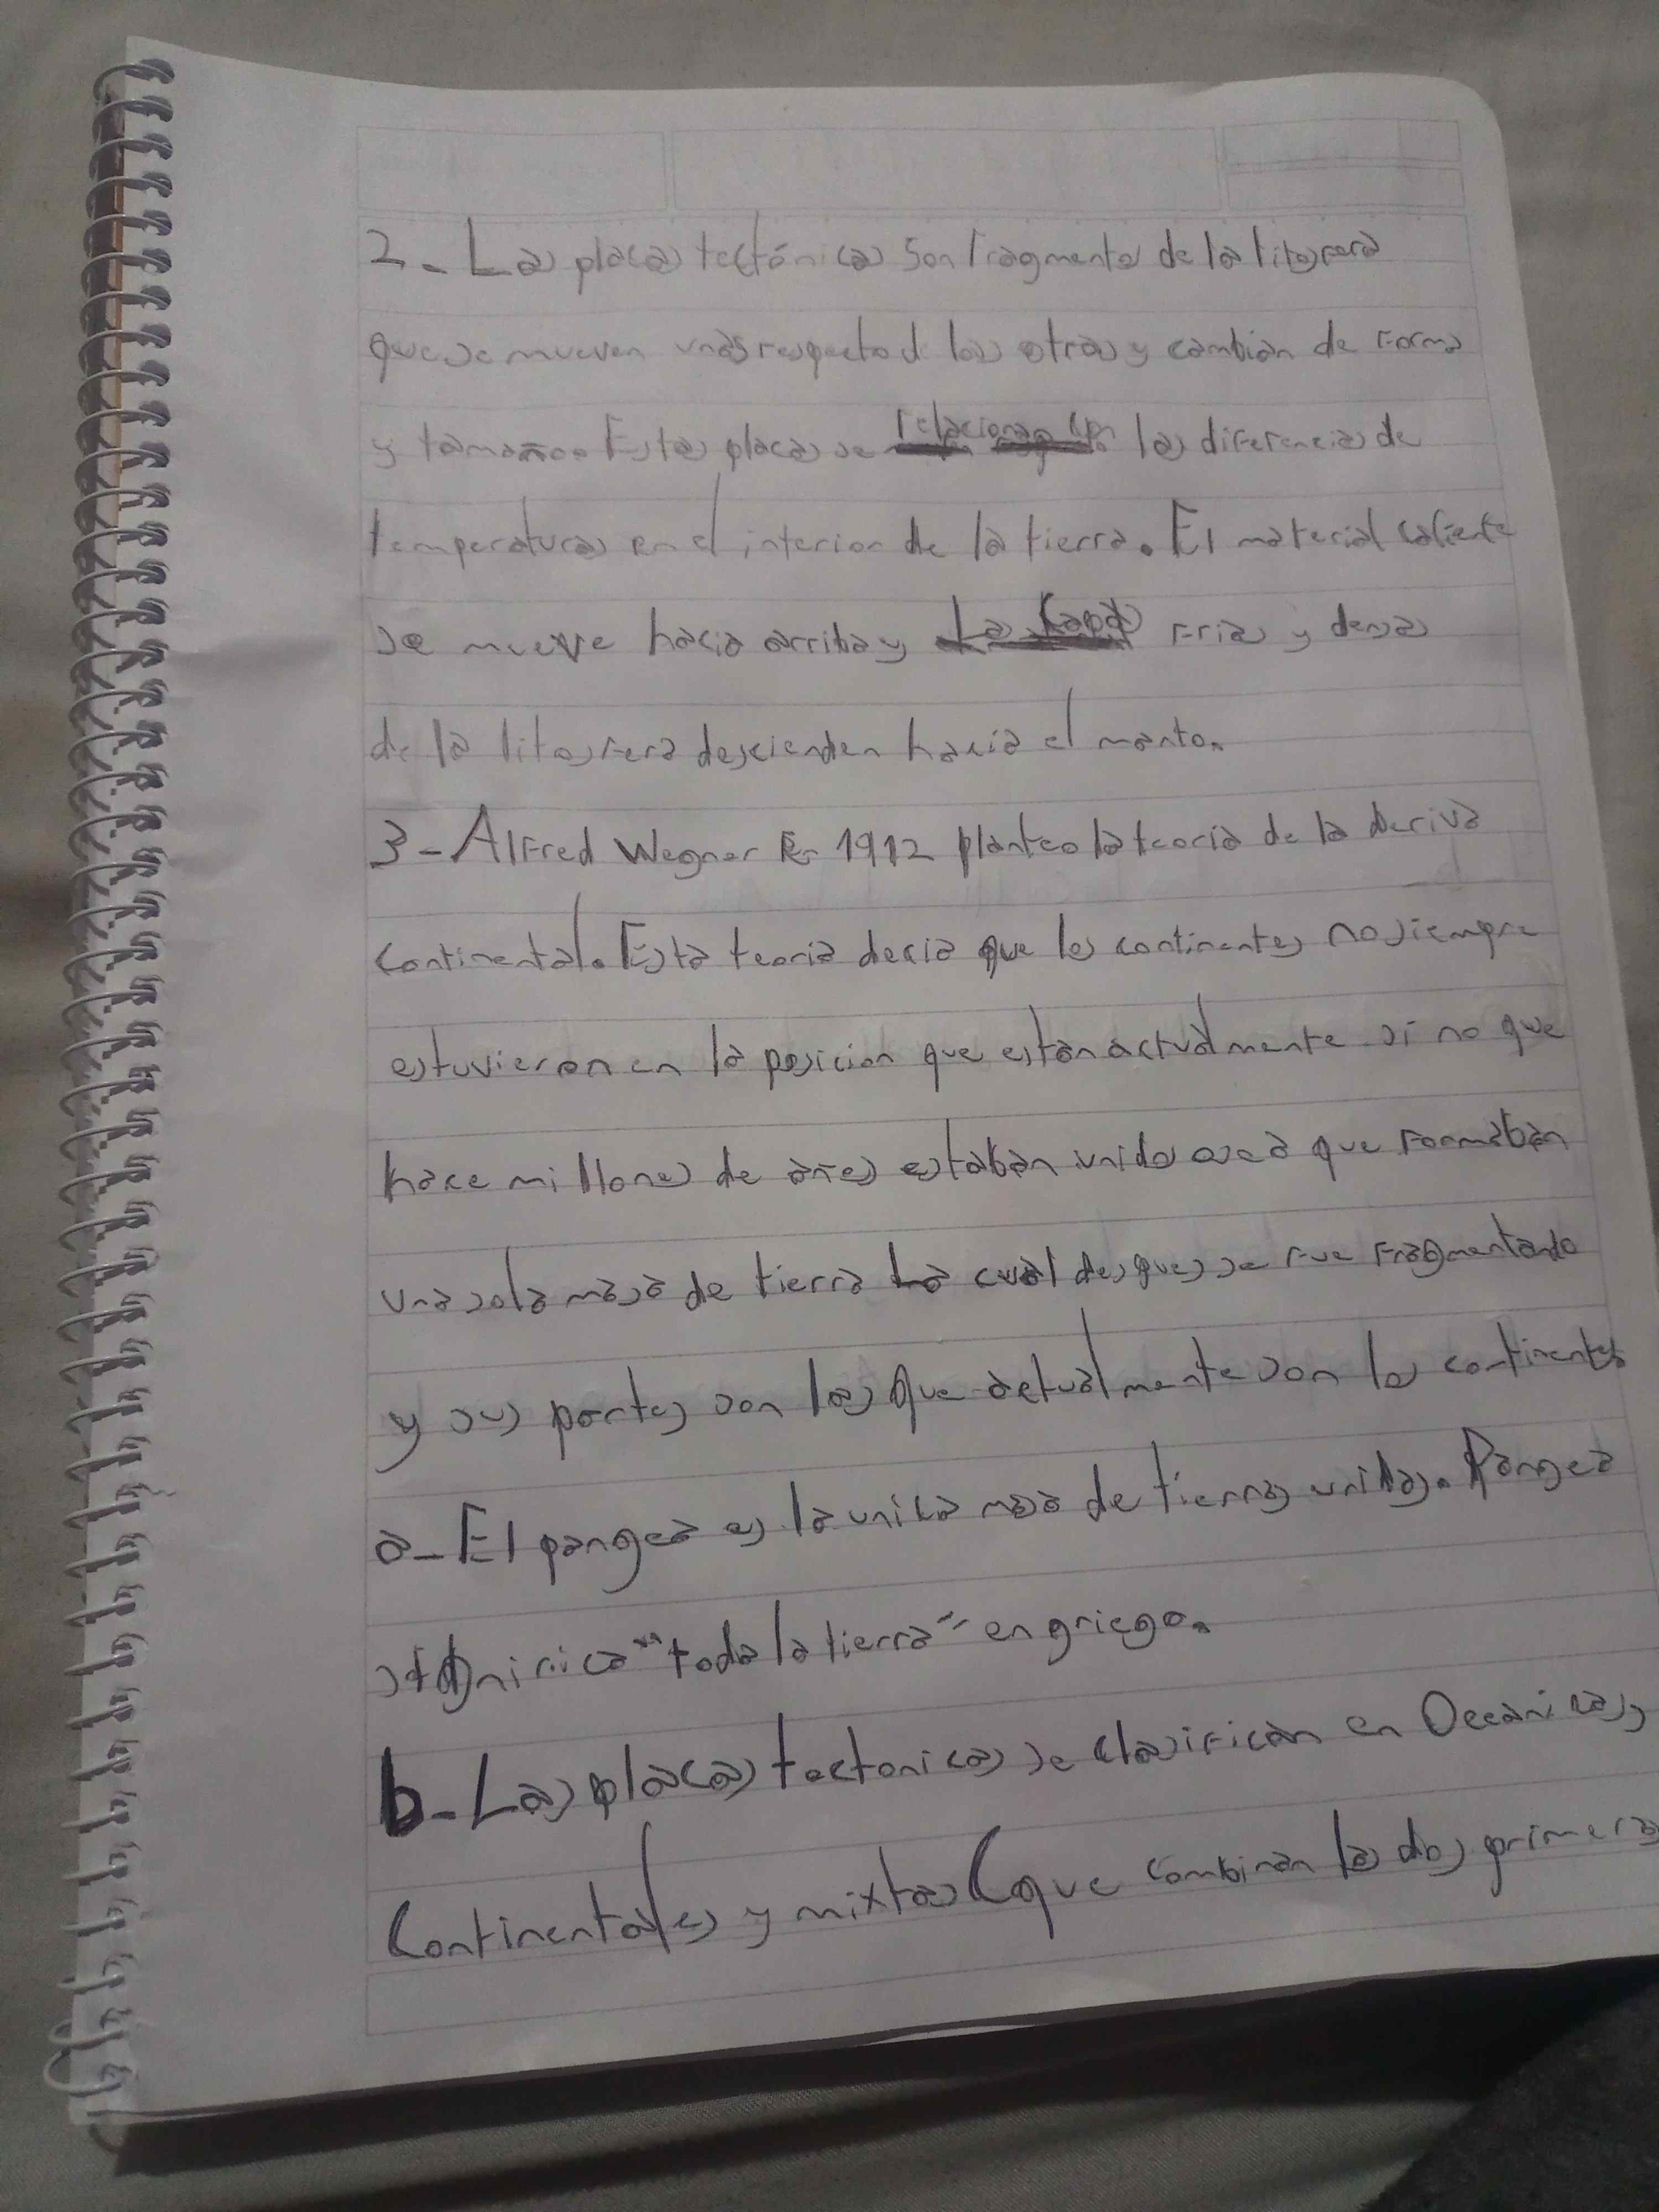 2- Las placas tectónicas son fragmentos de la litosfera
que se mueven unas respecto de las otras y cambian de forma
y tamaño. Estas placas se relacionan con las diferencias de
temperaturas en el interior de la tierra. El material caliente
se mueve hacia arriba y Las capas frias y densas
de la litosfera descienden hacia el manto.
3- Alfred Wegner En 1912 planteo la teoría de la Deriva
continental. Esta teoria decia que los continentes no siempre
estuvieron en la posicion que están actualmente si no que
hace millones de años estaban unidos o sea que formaban
una sola masa de tierra La cual despues se fue fragmentando
y sus partes son las que actualmente son los continentes
a- El pangea es la unica masa de tierras unidas. Pangea
significa "toda la tierra" en griego.
b- Las placas tectonicas se clasifican en Oceánicas,
Continentales y mixtas (que combinan las dos primeras